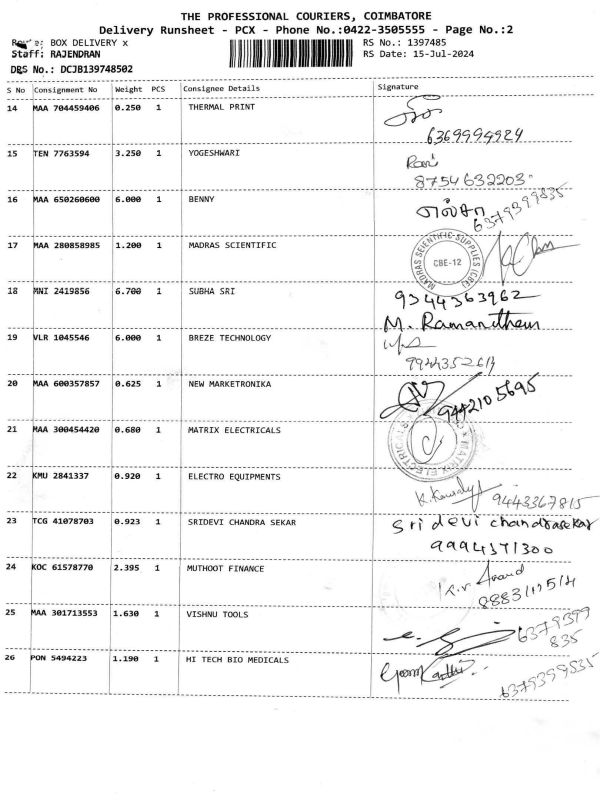 THE PROFESSIONAL COURIERS, COIMBATORE
Delivery Runsheet - PCX - Phone No.:0422-3505555 - Page No.:2
BOX DELIVERY x
RS No.: 1397485
Staff: RAJENDRAN
RS Date: 15-Jul-2024
DRS No.: DCJB139748502
S No Consignment No Weight PCS Consignee Details Signature
14 MAA 704459406 0.250 1 THERMAL PRINT
6369994929
15 TEN 7763594 3.250 1 YOGESHWARI
Ravi
8754632203
16 MAA 650260600 6.000 1 BENNY
6379399835
17 MAA 280858985 1.200 1 MADRAS SCIENTIFIC
MADRAS SCIENTIFIC SUPPLIES (CBE)
CBE-12
18 MNI 2419856 6.700 1 SUBHA SRI
9344363962
M. Ramanitham
19 VLR 1045546 6.000 1 BREZE TECHNOLOGY
20 MAA 600357857 0.625 1 NEW MARKETRONIKA
9442105695
21 MAA 300454420 0.680 1 MATRIX ELECTRICALS
MATRIX ELECTRICALS
22 KMU 2841337 0.920 1 ELECTRO EQUIPMENTS
9443367815
23 TCG 41078703 0.923 1 SRIDEVI CHANDRA SEKAR
Sridevi chandrasekar
9994371300
24 KOC 61578770 2.395 1 MUTHOOT FINANCE
K.V Anand
25 MAA 301713553 1.630 1 VISHNU TOOLS
6379399
835
26 PON 5494223 1.190 1 HI TECH BIO MEDICALS
6379399835